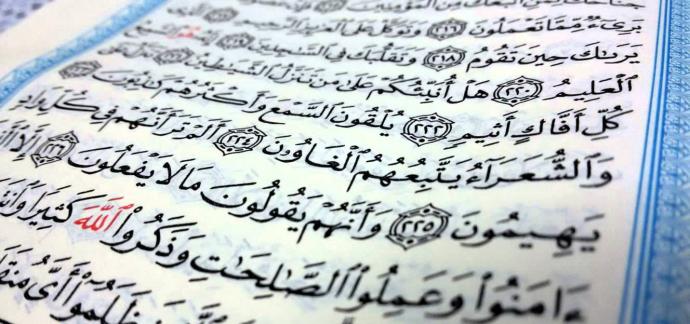 جناحك لمن اتبعك من المؤمنين
بَرِيٓءٌ مِّمَّا تَعْمَلُونَ ٢١٦ وَتَوَكَّلْ عَلَى ٱلْعَزِيزِ ٱلرَّحِيمِ
يَرَىٰكَ حِينَ تَقُومُ ٢١٨ وَتَقَلُّبَكَ فِي ٱلسَّٰجِدِينَ ٢١٩ إِنَّهُۥ هُوَ ٱلسَّمِيعُ
ٱلْعَلِيمُ ٢٢٠ هَلْ أُنَبِّئُكُمْ عَلَىٰ مَن تَنَزَّلُ ٱلشَّيَٰطِينُ ٢٢١ تَنَزَّلُ عَلَىٰ
كُلِّ أَفَّاكٍ أَثِيمٍ ٢٢٢ يُلْقُونَ ٱلسَّمْعَ وَأَكْثَرُهُمْ كَٰذِبُونَ
وَٱلشُّعَرَآءُ يَتَّبِعُهُمُ ٱلْغَاوُۥنَ ٢٢٤ أَلَمْ تَرَ أَنَّهُمْ فِي كُلِّ وَادٍ
يَهِيمُونَ ٢٢٥ وَأَنَّهُمْ يَقُولُونَ مَا لَا يَفْعَلُونَ ٢٢٦ إِلَّا
ءَامَنُوا۟ وَعَمِلُوا۟ ٱلصَّٰلِحَٰتِ وَذَكَرُوا۟ ٱللَّهَ كَثِيرًا
ظَلَمُوٓا۟ أَيَّ